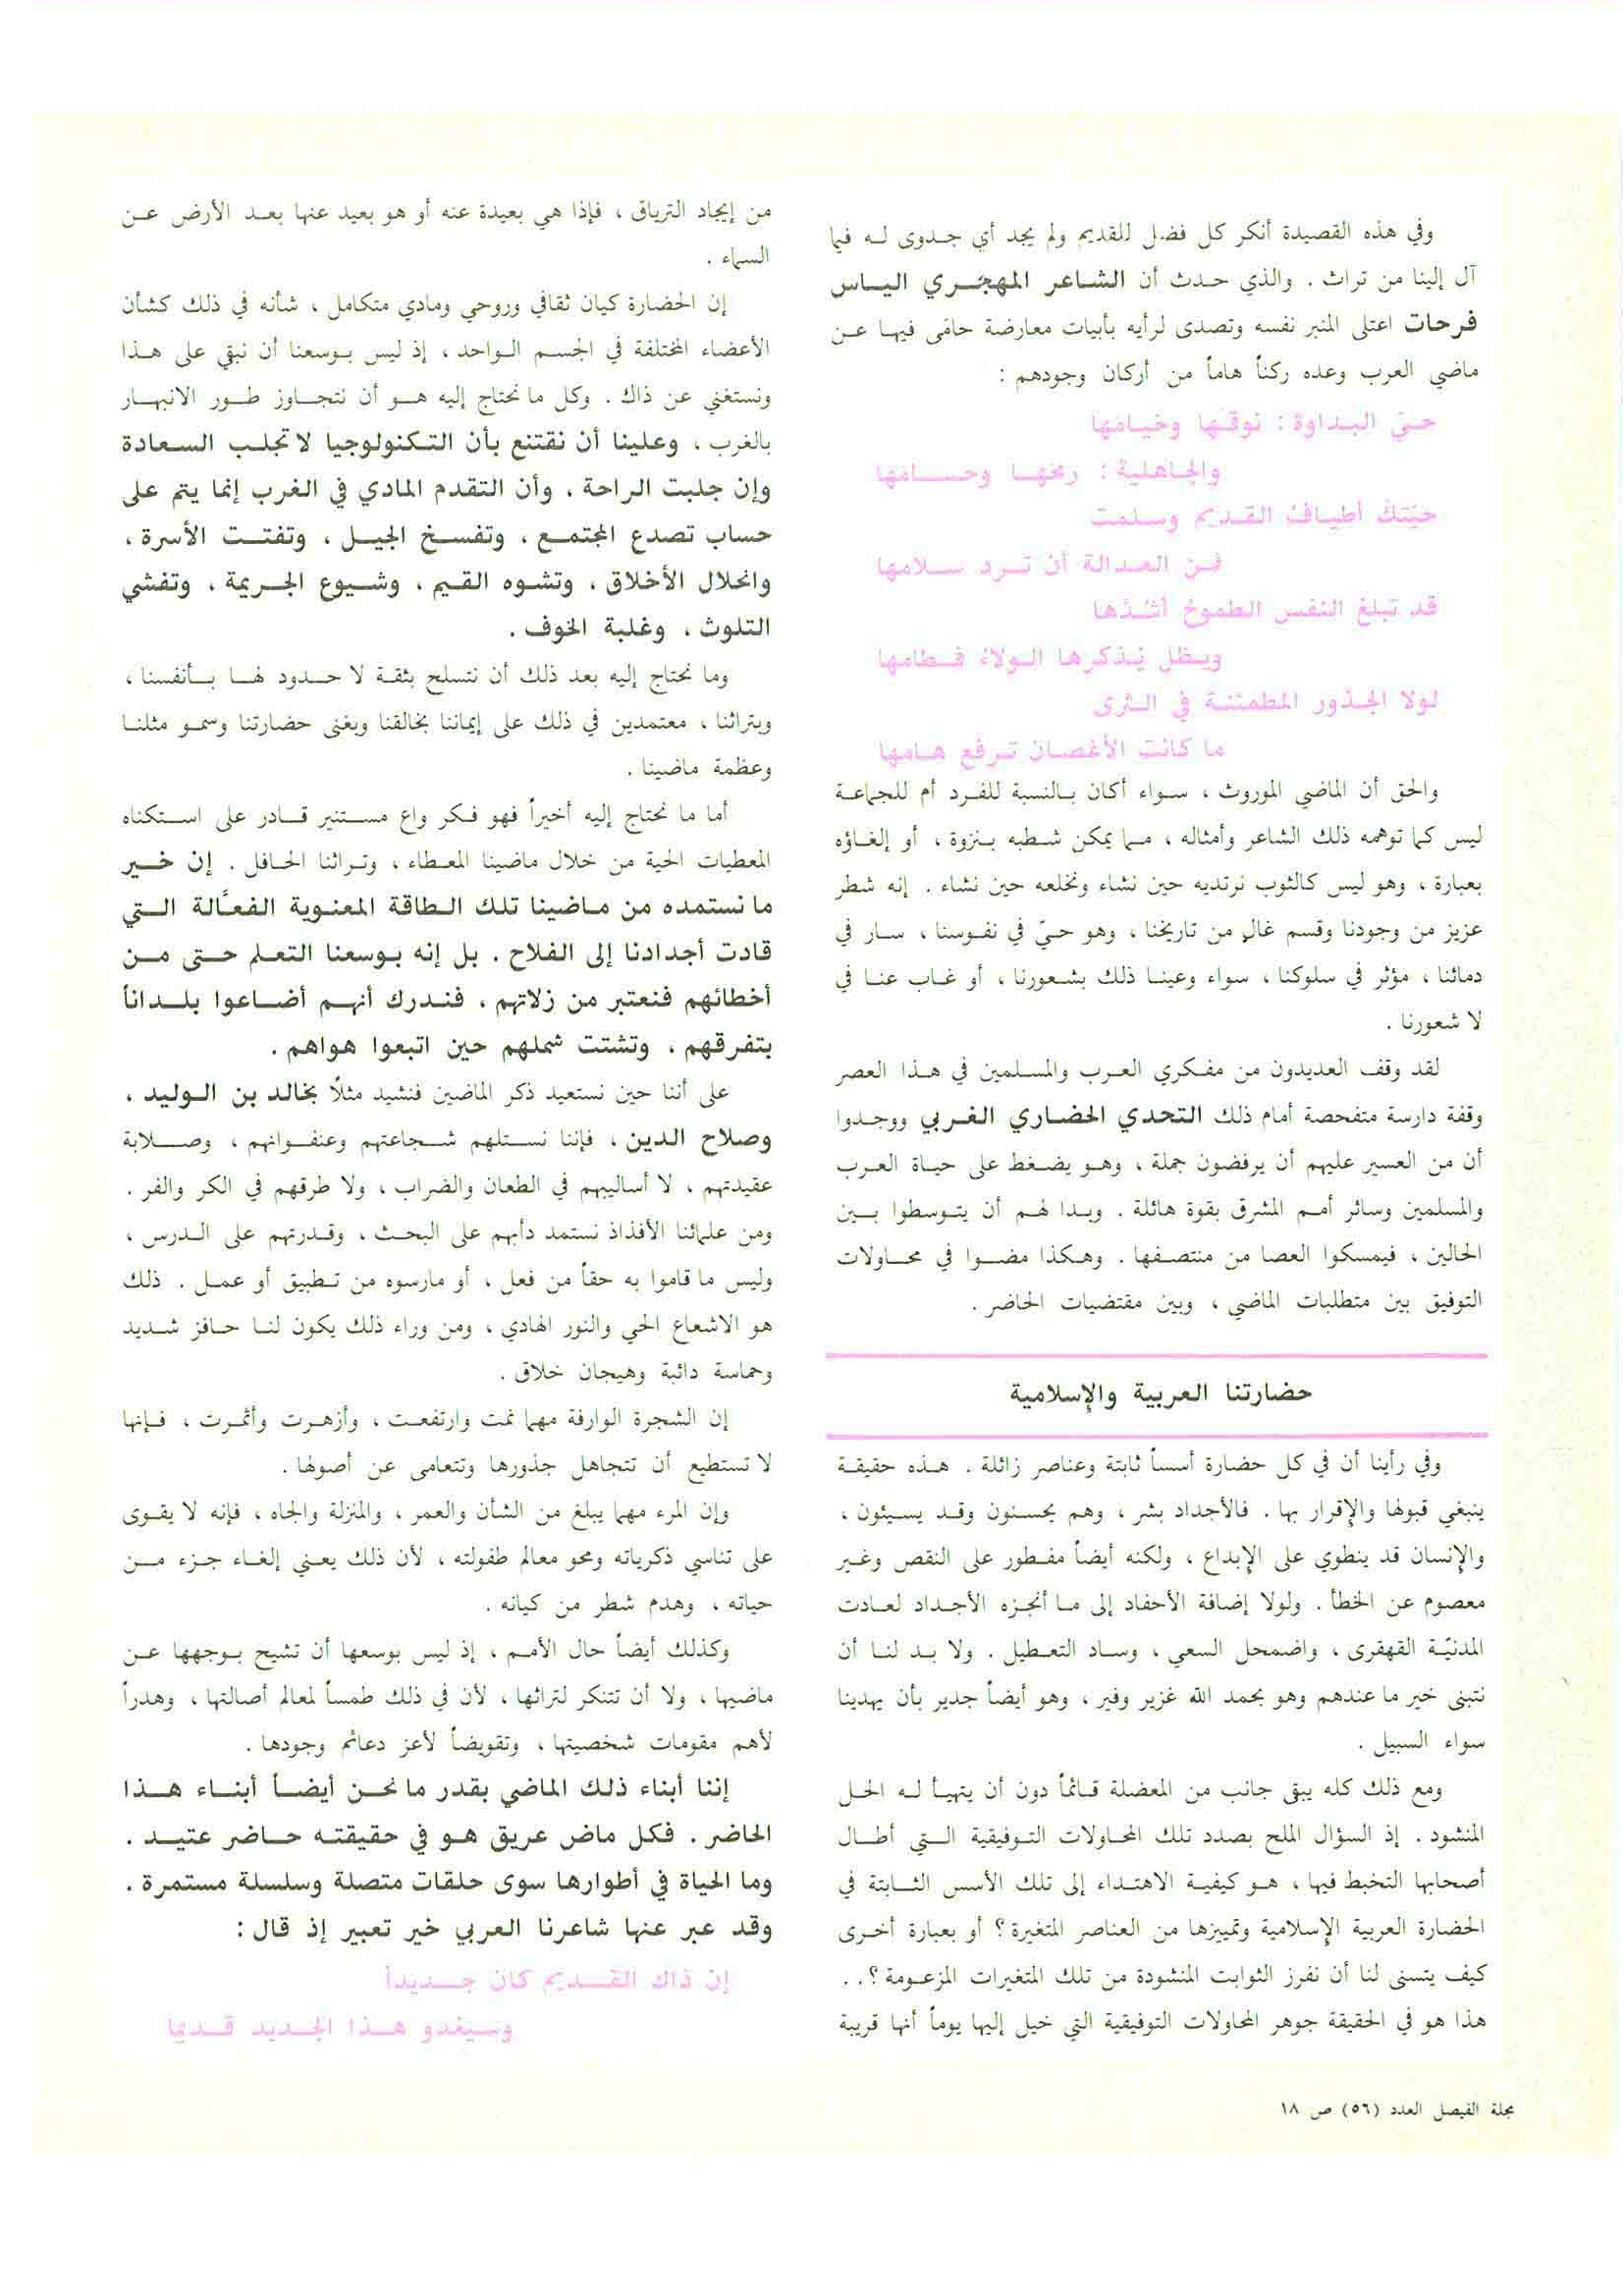 وفي هذه القصيدة أنكر كل فضل للقديم ولم يجد أي جدوى له فيما
آل إلينا من تراث . والذي حدث أن الشاعر المهجري الياس
فرحات اعتلى المنبر نفسه وتصدى لرأيه بأبيات معارضة حامَى فيها عن
ماضي العرب وعده ركناً هاماً من أركان وجودهم :
حيّ البداوة : نوقَها وخيامَها
والجاهلية : رمحَها وحسامَها
حيّتكَ أطيافُ القديم وسلمت
فمن العدالة أن ترد سلامها
قد تبلغ النفس الطموحُ أشدَّها
ويظل يُذكرها الولاءُ فطامها
لولا الجذور المطمئنة في الثرى
ما كانت الأغصان ترفع هامها
والحق أن الماضي الموروث ، سواء أكان بالنسبة للفرد أم للجماعة
ليس كما توهمه ذلك الشاعر وأمثاله ، مما يمكن شطبه بنزوة ، أو إلغاؤه
بعبارة ، وهو ليس كالثوب نرتديه حين نشاء ونخلعه حين نشاء . إنه شطر
عزيز من وجودنا وقسم غالٍ من تاريخنا ، وهو حيّ في نفوسنا ، سار في
دمائنا ، مؤثر في سلوكنا ، سواء وعينا ذلك بشعورنا ، أو غاب عنا في
لا شعورنا .
لقد وقف العديدون من مفكري العرب والمسلمين في هذا العصر
وقفة دارسة متفحصة أمام ذلك التحدي الحضاري الغربي ووجدوا
أن من العسير عليهم أن يرفضون جملة ، وهو يضغط على حياة العرب
والمسلمين وسائر أمم المشرق بقوة هائلة . وبدا لهم أن يتوسطوا بين
الحالين ، فيمسكوا العصا من منتصفها . وهكذا مضوا في محاولات
التوفيق بين متطلبات الماضي ، وبين مقتضيات الحاضر .
حضارتنا العربية والإسلامية
وفي رأينا أن في كل حضارة أسساً ثابتة وعناصر زائلة . هذه حقيقة
ينبغي قبولها والإقرار بها . فالأجداد بشر ، وهم يحسنون وقد يسيئون ،
والإنسان قد ينطوي على الإبداع ، ولكنه أيضاً مفطور على النقص وغير
معصوم عن الخطأ . ولولا إضافة الأحفاد إلى ما أنجزه الأجداد لعادت
المدنيّة القهقرى ، واضمحل السعي ، وساد التعطيل . ولا بد لنا أن
نتبنى خير ما عندهم وهو بحمد الله غزير وفير ، وهو أيضاً جدير بأن يهدينا
سواء السبيل .
ومع ذلك كله يبقى جانب من المعضلة قائماً دون أن يتهيأ له الحل
المنشود . إذ السؤال الملح بصدد تلك المحاولات التوفيقية التي أطال
أصحابها التخبط فيها ، هو كيفية الاهتداء إلى تلك الأسس الثابتة في
الحضارة العربية الإسلامية وتمييزها من العناصر المتغيرة ؟ أو بعبارة أخرى
كيف يتسنى لنا أن نفرز الثوابت المنشودة من تلك المتغيرات المزعومة ؟ . .
هذا هو في الحقيقة جوهر المحاولات التوفيقية التي خيل إليها يوماً أنها قريبة
من إيجاد الترياق ، فإذا هي بعيدة عنه أو هو بعيد عنها بعد الأرض عن
السماء .
إن الحضارة كيان ثقافي وروحي ومادي متكامل ، شأنه في ذلك كشأن
الأعضاء المختلفة في الجسم الواحد ، إذ ليس بوسعنا أن نبقي على هذا
ونستغني عن ذاك . وكل ما نحتاج إليه هو أن نتجاوز طور الانبهار
بالغرب ، وعلينا أن نقتنع بأن التكنولوجيا لا تجلب السعادة
وإن جلبت الراحة ، وأن التقدم المادي في الغرب إنما يتم على
حساب تصدع المجتمع ، وتفسخ الجيل ، وتفتت الأسرة ،
وانحلال الأخلاق ، وتشوه القيم ، وشيوع الجريمة ، وتفشي
التلوث ، وغلبة الخوف .
وما نحتاج إليه بعد ذلك أن نتسلح بثقة لا حدود لها بأنفسنا ،
وبتراثنا ، معتمدين في ذلك على إيماننا بخالقنا وبغنى حضارتنا وسمو مثلنا
وعظمة ماضينا .
أما ما نحتاج إليه أخيراً فهو فكر واع مستنير قادر على استكناه
المعطيات الحية من خلال ماضينا المعطاء ، وتراثنا الحافل . إن خير
ما نستمده من ماضينا تلك الطاقة المعنوية الفعَّالة التي
قادت أجدادنا إلى الفلاح . بل إنه بوسعنا التعلم حتى من
أخطائهم فنعتبر من زلاتهم ، فندرك أنهم أضاعوا بلداناً
بتفرقهم ، وتشتت شملهم حين اتبعوا هواهم .
على أننا حين نستعيد ذكر الماضين فنشيد مثلاً بخالد بن الوليد ،
وصلاح الدين ، فإننا نستلهم شجاعتهم وعنفوانهم ، وصلابة
عقيدتهم ، لا أساليبهم في الطعان والضراب ، ولا طرقهم في الكر والفر .
ومن علمائنا الأفذاذ نستمد دأبهم على البحث ، وقدرتهم على الدرس ،
وليس ما قاموا به حقاً من فعل ، أو مارسوه من تطبيق أو عمل . ذلك
هو الاشعاع الحي والنور الهادي ، ومن وراء ذلك يكون لنا حافز شديد
وحماسة دائبة وهيجان خلاق .
إن الشجرة الوارفة مهما نمت وارتفعت ، وأزهرت وأثمرت ، فإنها
لا تستطيع أن تتجاهل جذورها وتتعامى عن أصولها .
وإن المرء مهما يبلغ من الشأن والعمر ، والمنزلة والجاه ، فإنه لا يقوى
على تناسي ذكرياته ومحو معالم طفولته ، لأن ذلك يعني إلغاء جزء من
حياته ، وهدم شطر من كيانه .
وكذلك أيضاً حال الأمم ، إذ ليس بوسعها أن تشيح بوجهها عن
ماضيها ، ولا أن تتنكر لتراثها ، لأن في ذلك طمساً لمعالم أصالتها ، وهدراً
لأهم مقومات شخصيتها ، وتقويضاً لأعز دعائم وجودها .
إننا أبناء ذلك الماضي بقدر ما نحن أيضاً أبناء هذا
الحاضر . فكل ماض عريق هو في حقيقته حاضر عتيد .
وما الحياة في أطوارها سوى حلقات متصلة وسلسلة مستمرة .
وقد عبر عنها شاعرنا العربي خير تعبير إذ قال :
إن ذاك القديم كان جديداً
وسيغدو هذا الجديد قديما
مجلة الفيصل العدد (٥٦) ص ١٨